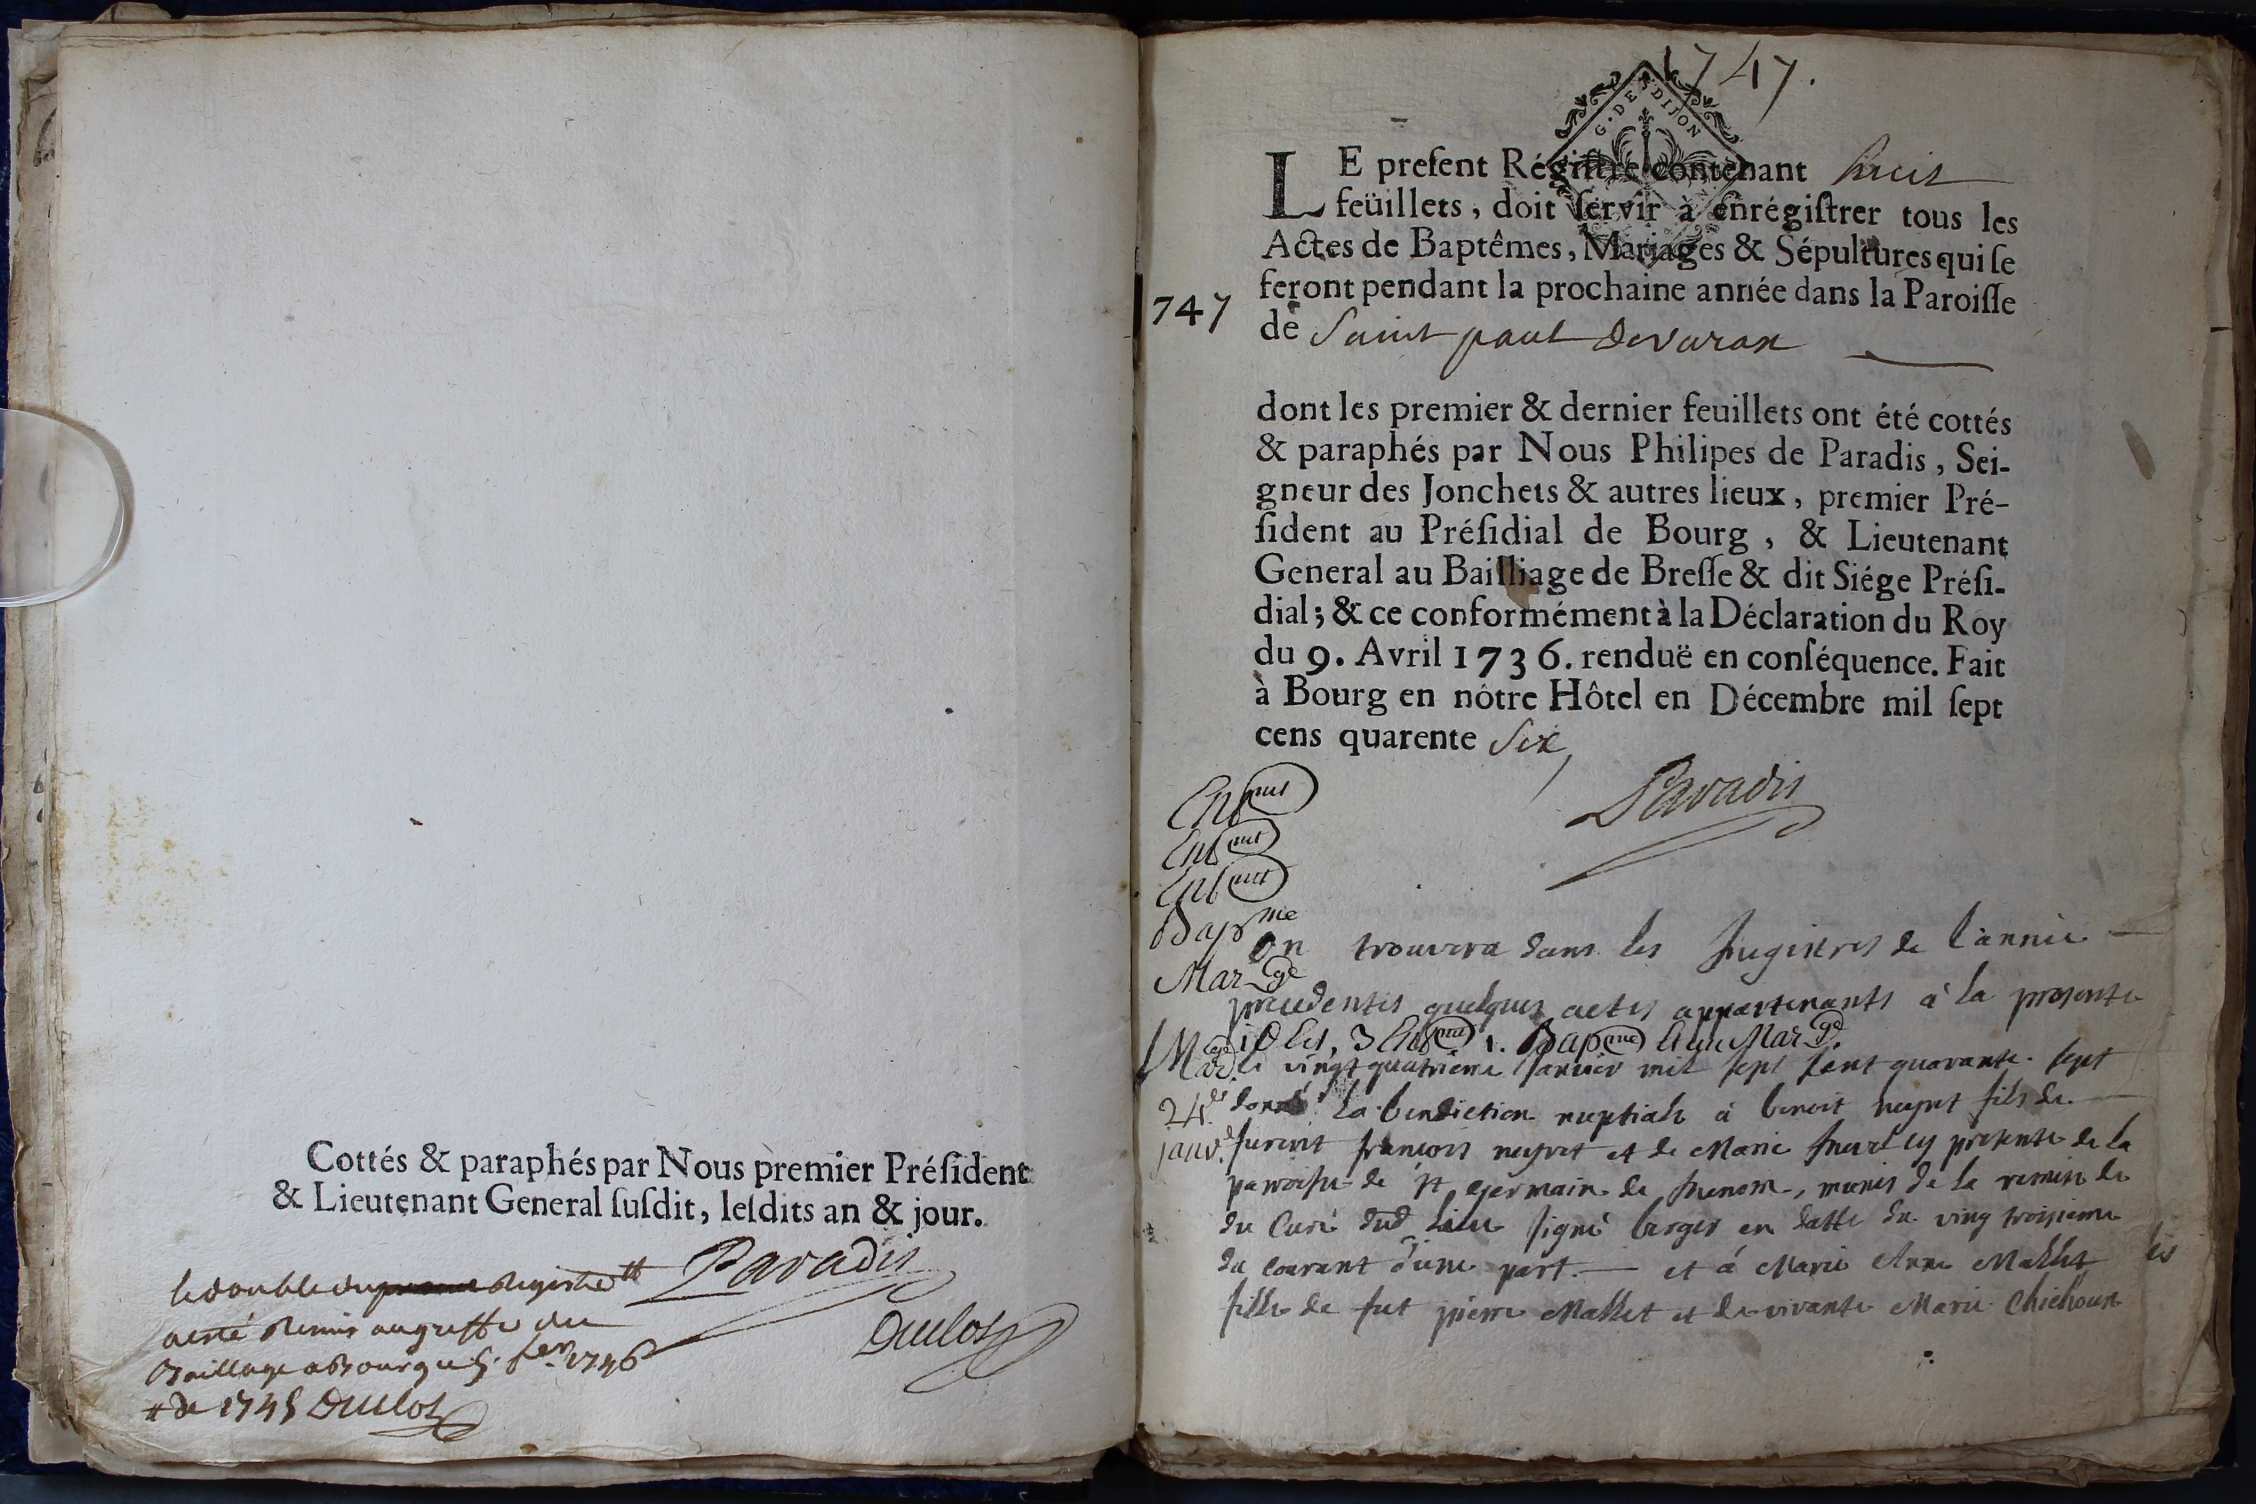 Cottés & paraphés par Nous premier Préſident
& Lieutenant General ſuſdit, leſdits an & jour.
le double du Registre
Paradis
a esté Remis au greffe du
Duclos
Baillage a Bourg 1746
de 1745 Duclos
1747.
G. DE DIJON
LE preſent Régiſtre contenant huit
feüillets, doit ſervir à enrégiſtrer tous les
Actes de Baptêmes, Mariages & Sépultures qui ſe
feront pendant la prochaine année dans la Paroiſſe
747
de Saint paul de varax
dont les premier & dernier feuillets ont été cottés
& paraphés par Nous Philipes de Paradis, Sei-
gneur des Jonchets & autres lieux, premier Pré-
ſident au Préſidial de Bourg, & Lieutenant
General au Bailliage de Breſſe & dit Siége Préſi-
dial; & ce conformément à la Déclaration du Roy
du 9. Avril 1736. renduë en conſéquence. Fait
à Bourg en nôtre Hôtel en Décembre mil ſept
cens quarente Six
Paradis
On trouvera dans les de l'année
Mar
precedentes quelques actes appartenants à la presente
le vingt quatrieme Janvier mil sept cent quarante sept
24
donné la benediction nuptiale à benoit neyret fils de
janv.
françois neyret et de Marie presente de la
paroisse de St germain de munis de la remise de
du Curé dud lieu signé berger en datte du ving troisieme
du courant d'une part et à Marie Anne Mallet
fille de fut pierre Mallet et de vivante Marie